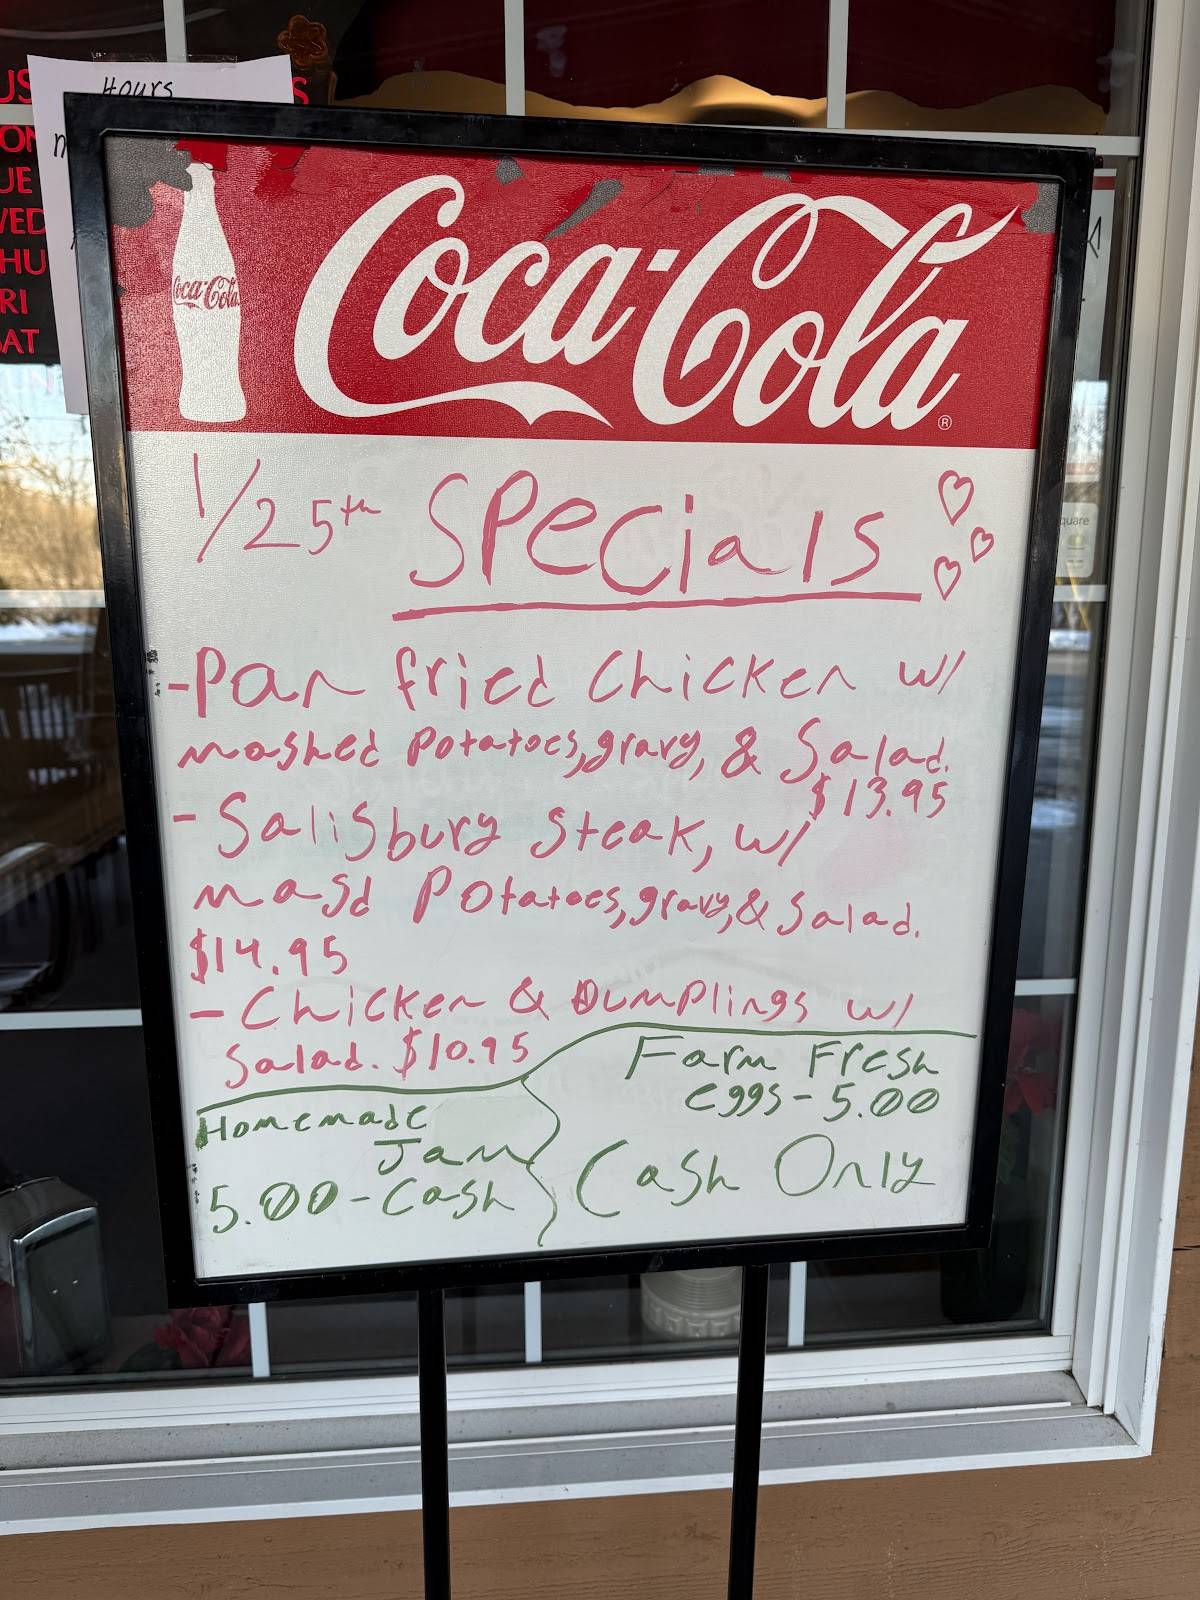 Hours
US
S
ON
UE
WED
HU
RI
SAT
Coca-Cola
Coca-Cola
®
1/25th Specials
-Pan fried Chicken w/
mashed Potatoes, gravy, & Salad.
$13.95
- Salisbury Steak, w/
masd Potatoes, gravy, & Salad.
$14.95
- Chicken & Dumplings w/
Salad. $10.95
Farm Fresh
eggs - 5.00
Cash Only
Homemade
Jam
5.00 - Cash
quare